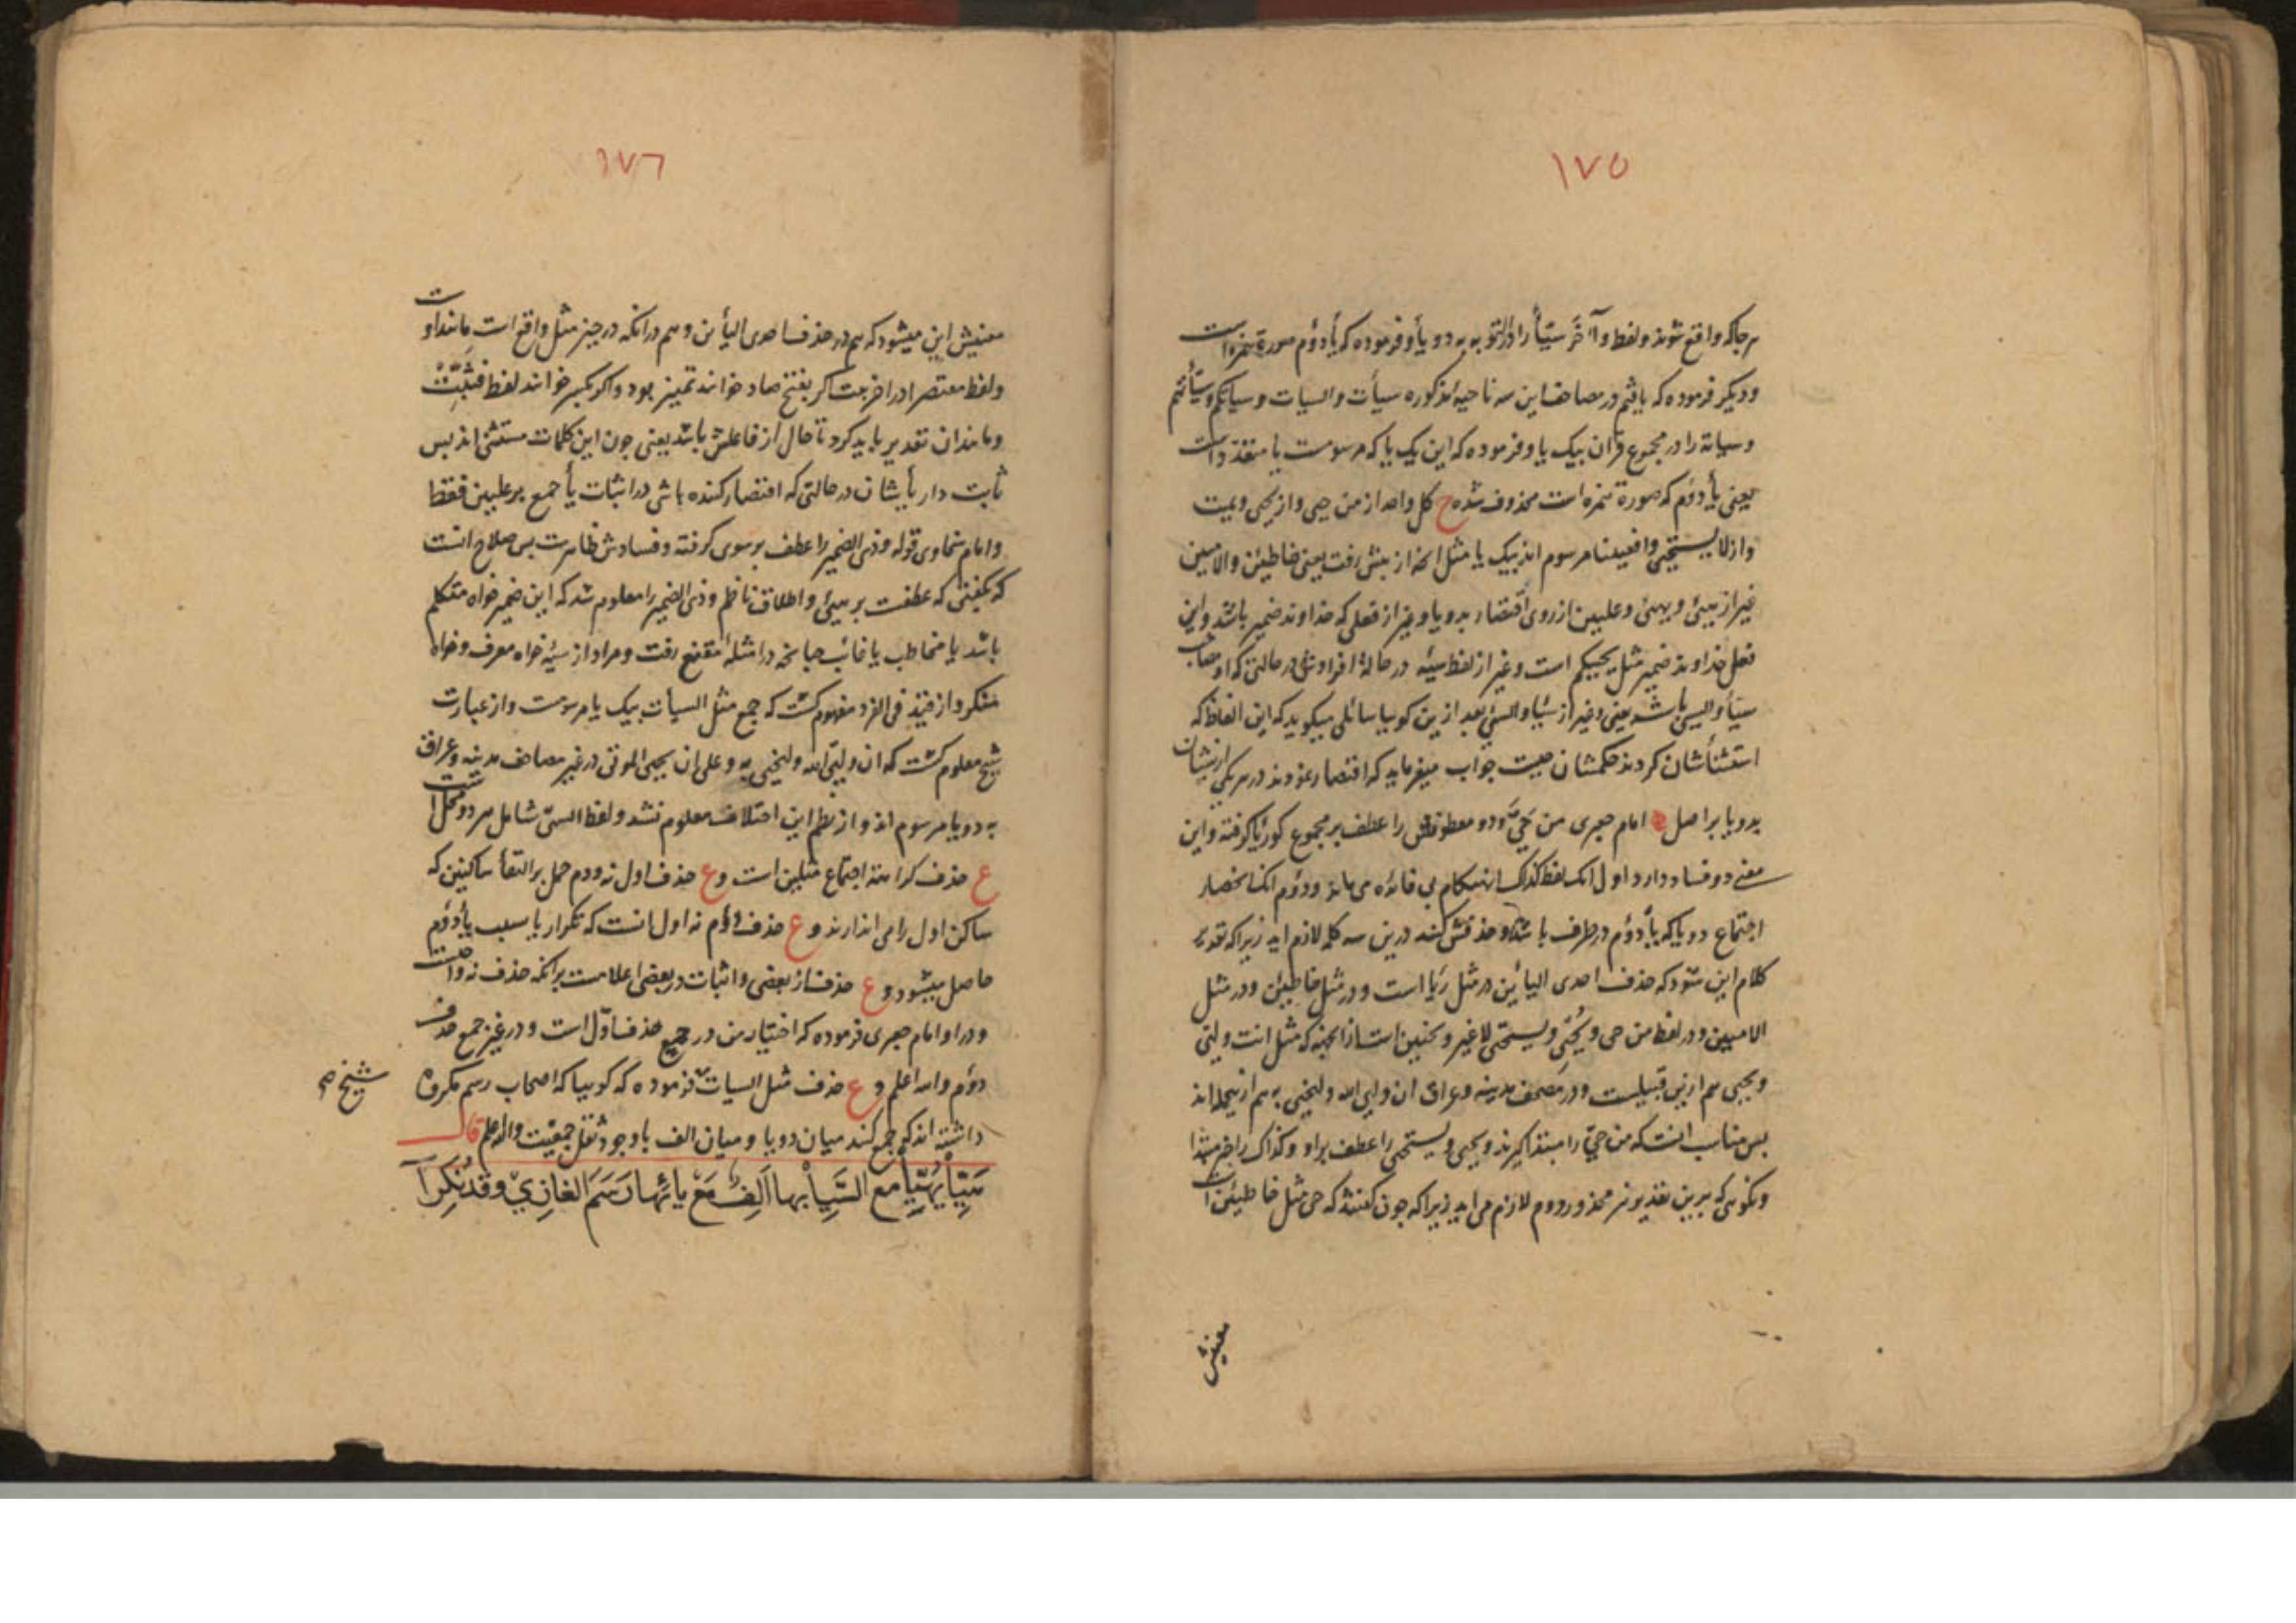 ١٧٥
هرجا که واقع شوند ولفظ وآخر سیئا را در التوبه به دو یا و فرموده که یأ دوم صورة همزه است
ودیکر فرموده که یافتم در مصاحف این سه ناحیهٔ مذکوره سیأت والسیات وسیاتکم وسیأتهم
وسیاته را در مجموع قرآن بیک یا وفرموده که این یک یا که مرسومست یا
یعنی یأ دوم که صورة همزه است محذوف شده ح کل واحد از من حیی واز یحیی ویمیت
واز لا یستحیی وافعیینا مرسوم اند بیک یا مثل انچه از پیش رفت یعنی خاطئین والامیین
غیر از یهیئ وعلیین از روی اقتصار بدو یا وغیر از فعلی که خداوند ضمیر باشد واین
فعل خداوند ضمیر مثل یحییکم است وغیر از لفظ سیئه در حالهٔ افرادش در حالتی که او مصاحب
سیئا والسیئ باشد یعنی وغیر از سیئا والسیئ بعد از ین کوییا سائلی میکوید که این الفاظ که
استثنأشان کردند حکمشان چیست جواب میفرماید که اقتصار نمودند در هریکی ازیشان
بدو یا بر اصل امام جعبری من حیّ ودو معطوفش را عطف بر مجموع کورئیا کرفته واین
معنی دو فساد دارد اول انک لفظ کذاک این هنکام بی فائده می ماند ودوم انک انحصار
اجتماع دو یا که یأ دوم در طرف باشد وحذفش کنند درین سه کلمه لازم اید زیرا که تقدیر
کلام این شود که حذف احدی الیائین در مثل رئیا است ودر مثل خاطئین ودر مثل
الامیین ودر لفظ من حی ویحیی ویستحیی لا غیر ونچنین است از انجهة که مثل انت ولیی
ویحیی هم ازین قبیلست ودر مصحف مدینه وعراق ان ولیی الله ولنحیی به هم ازینجمله اند
پس مناسب انست که من حیّ را مبتدا کیرند ویحیی ویستحیی را عطف براو وکذاک را خبر مبتدا
ونکویی که برین تقدیر نیز محذور دوم لازم می اید زیرا که چون کفتند که حی مثل خاطئین است
معنیش
١٧٦
معنیش این میشود که هم در حذف احدی الیأین وهم در انکه در حیز مثل واقع است مانند اوست
ولفظ مقتصرا در اخر بیت اکر بفتح صاد خوانند تمییز بود واکر بکسر خوانند لفظ فتثبت
ومانند ان تقدیر باید کرد تا حال از فاعلش باشد یعنی چون این کلمات مستثنی اند پس
ثابت دار یأیشان در حالتی که اقتصار کننده باشی در اثبات یأ جمع بر علیین فقط
وامام سخاوی قوله وذی الضمیر را عطف بر سوی کرفته وفسادش ظاهرست پس صلاح انست
که بکفتی که عطفست بر یهیئ واطلاق ناظم وذی الضمیر را معلوم شد که این ضمیر خواه متکلم
باشد یا مخاطب یا غائب چنانچه در امثلهٔ مقنع رفت ومراد از سیئه خواه معرف وخواه
منکر واز قید فی الفرد مفهوم کشت که جمع مثل السیأت بیک یا مرسومست واز عبارت
شیخ معلوم کشت که ان ولیی الله ولنحیی به وعلی ان یحیی الموتی در غیر مصاحف مدینه وعراق
به دو یا مرسوم اند واز نظم این اختلاف معلوم نشد ولفظ السیئ شامل هر دو محل است
ع حذف کراهة اجتماع مثلین است وع حذف اول نه دوم حمل بر التقأ ساکنین که
ساکن اول را می اندازند وع حذف دوم نه اول انست که تکرار یا سبب یأ دوم
حاصل میشود وع حذف از بعضی واثبات در بعضی اعلامست برانکه حذف نه واجبست
ودر او امام جعبری فرموده که اختیار من در جمع حذف اوّل است ودر غیر جمع حذف
دوم والله اعلم وع حذف مثل السیات شیخ فرموده که کوییا که اصحاب رسم مکروه
داشته اند که جمع کنند میان دو یا ومیان الف با وجود ثقل جمعیّت والله اعلم قال
هَیِّئْ یُهَیِّئْ مع السَّیِّئْ بها اَلِفٌ مَعْ یائِها رَسَمَ الغازِیْ وقد نُکِرَآ